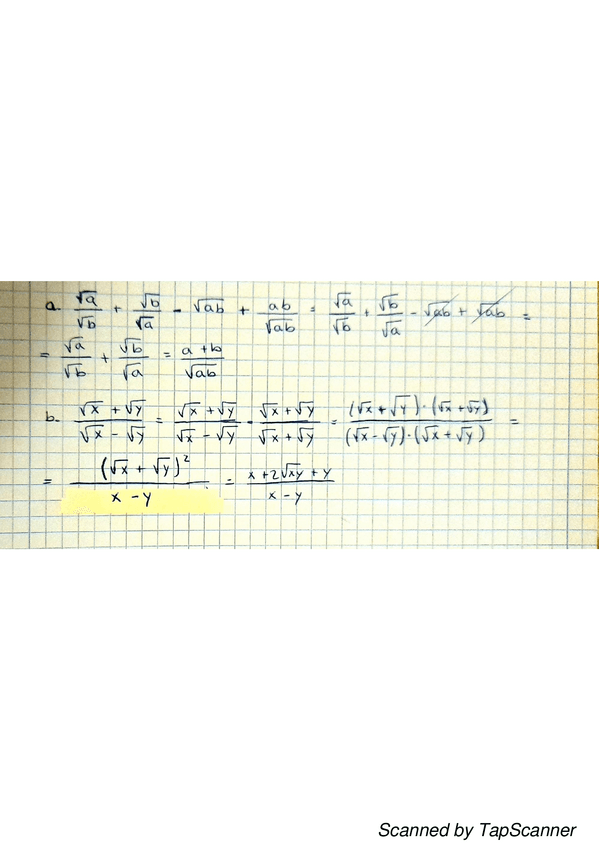 a. √a/√b + √b/√a - √ab + ab/√ab = √a/√b + √b/√a - √ab + √ab =
= √a/√b + √b/√a = a+b/√ab
b. √x + √y/√x - √y = √x + √y/√x - √y · √x + √y/√x + √y = (√x + √y)·(√x + √y)/(√x - √y)·(√x + √y) =
= (√x + √y)²/x - y = x + 2√xy + y/x - y
Scanned by TapScanner